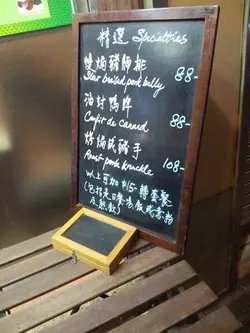 精選 Specialties
慢焗豬腩排 88-
Slow braised pork belly
油封鴨脾
Confit de canard 88-
烤焗咸豬手
Roast pork knuckle 108-
以上可加$15-轉套餐
(包括是日餐湯,飯或意粉
及熱飲)